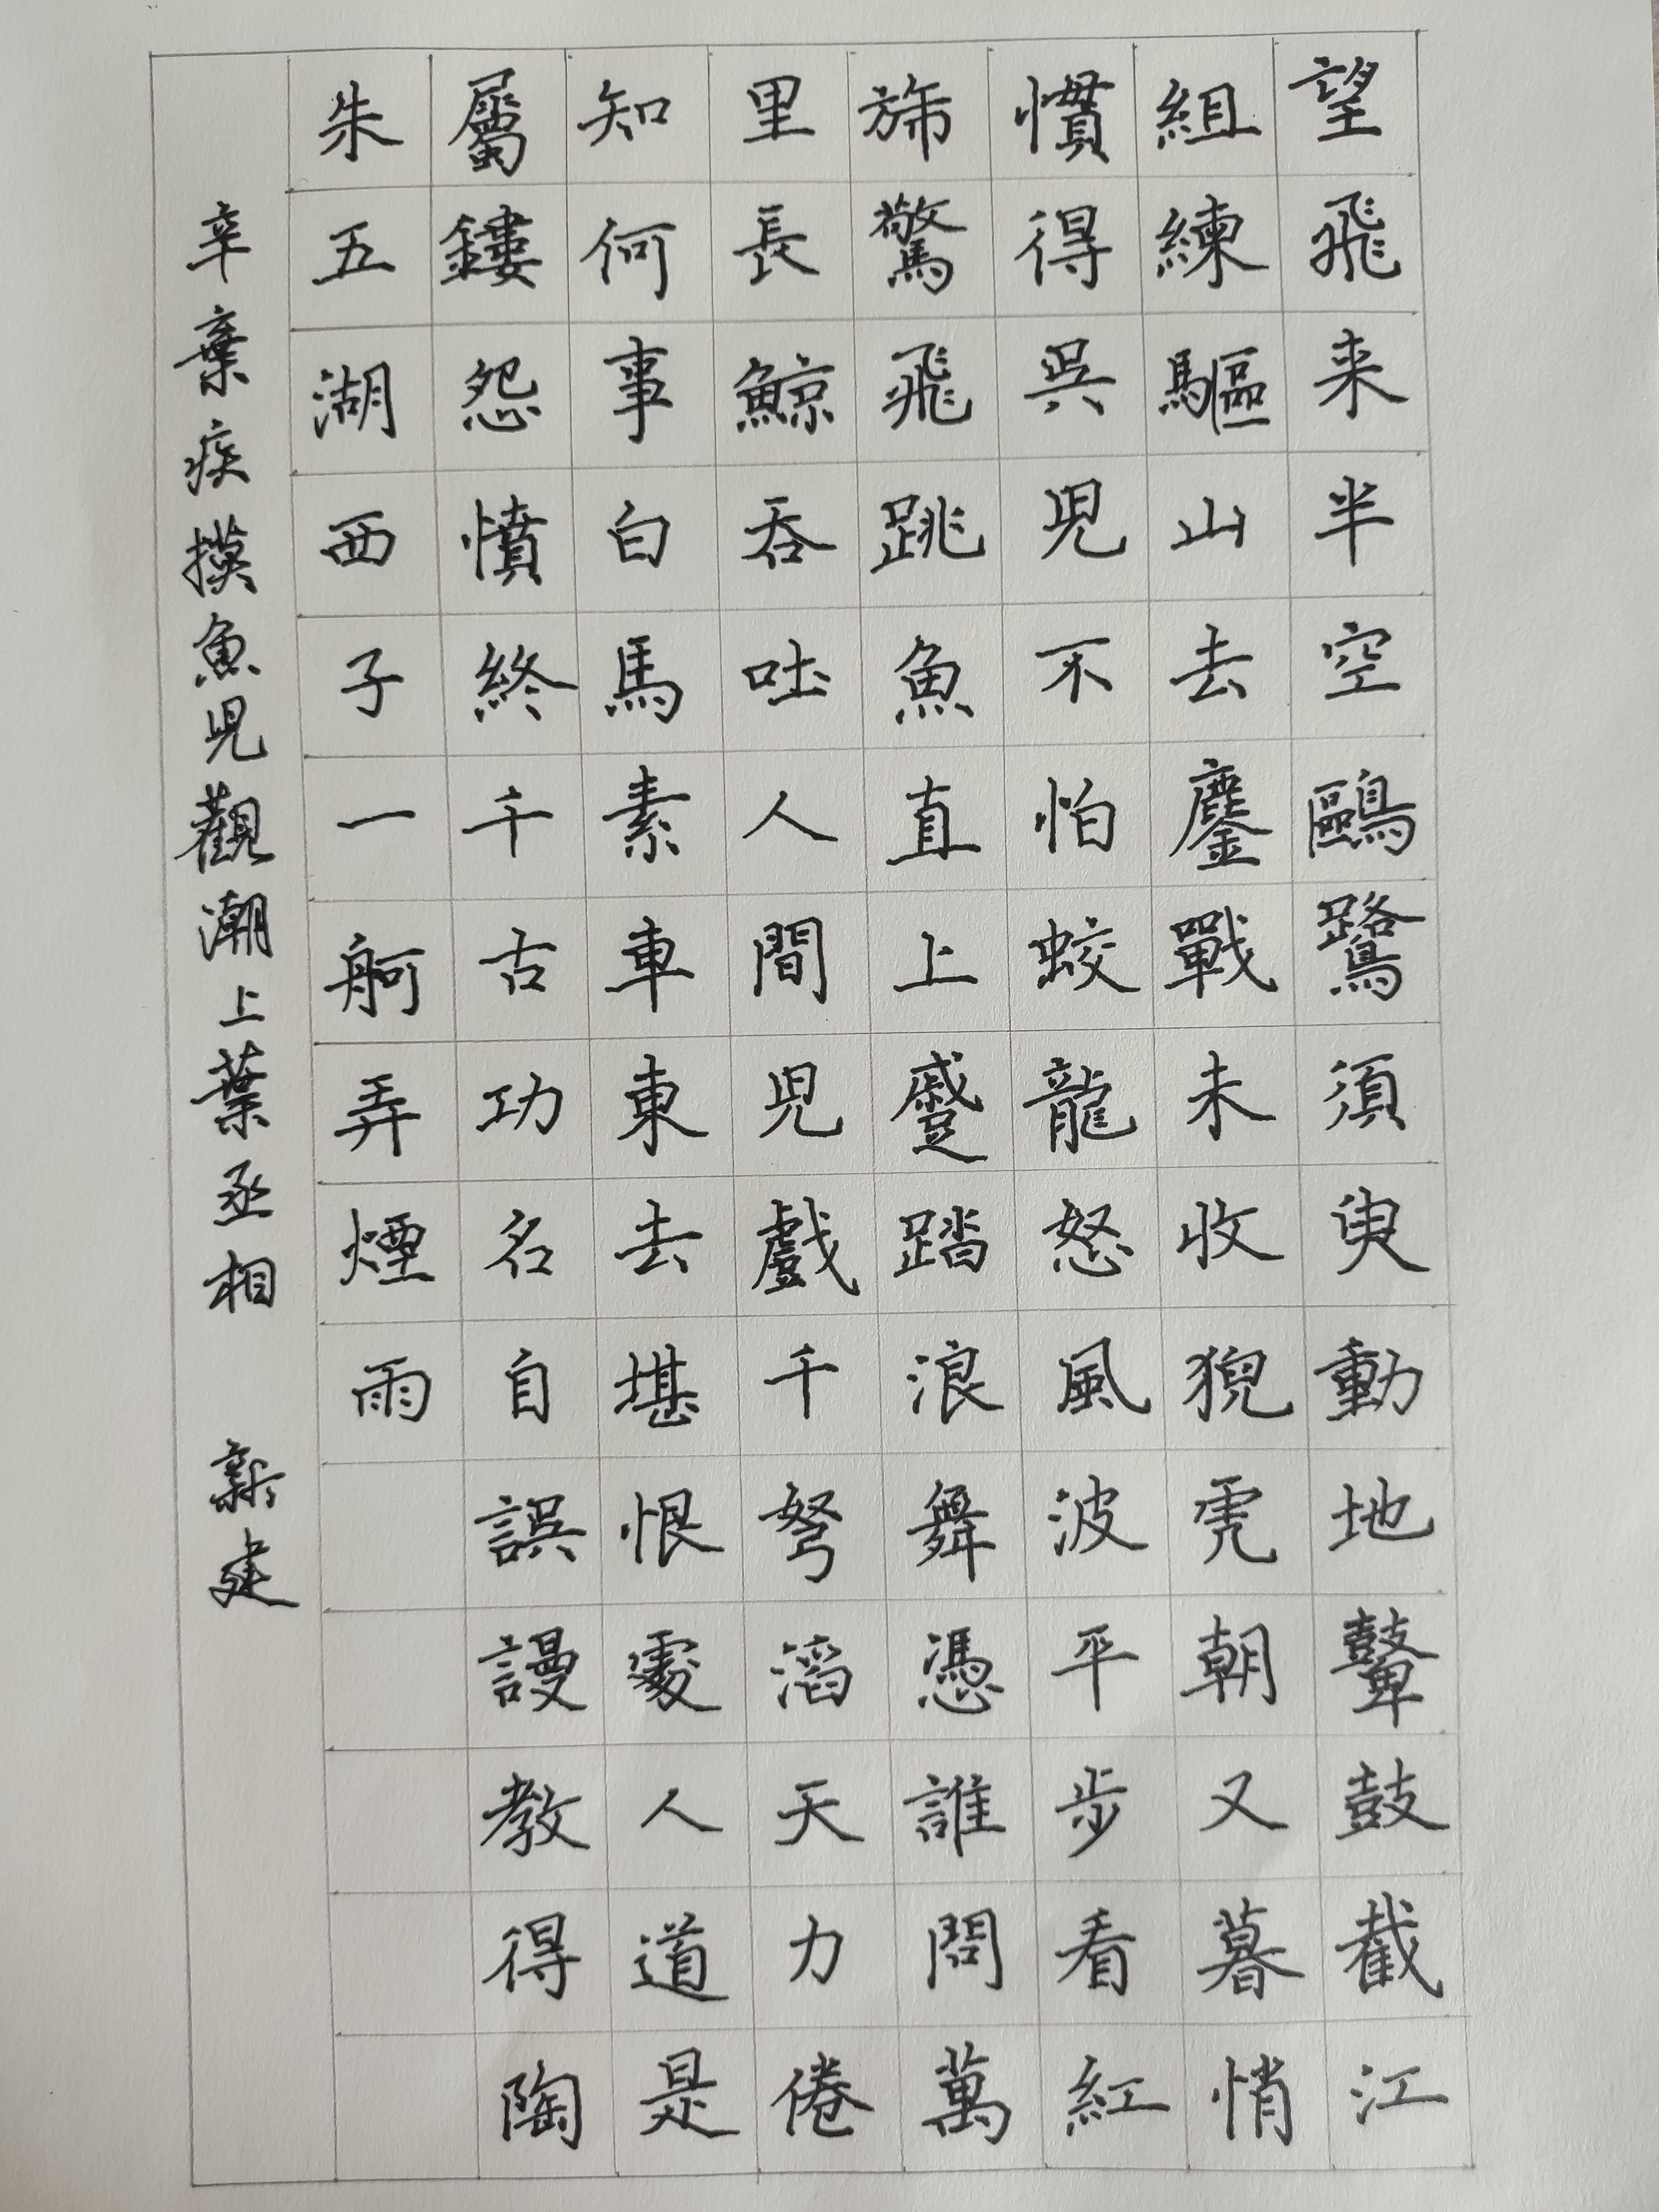 望飛来半空鷗鷺須臾動地鼙鼓截江
組練驅山去鏖戰未收貔虎朝又暮悄
慣得吳兒不怕蛟龍怒風波平步看紅
旆驚飛跳魚直上蹙踏浪舞憑誰問萬
里長鯨吞吐人間兒戲千弩滔天力倦
知何事白馬素車東去堪恨處人道是
屬鏤怨憤終千古功名自誤謾教得陶
朱五湖西子一舸弄煙雨
辛棄疾摸魚兒觀潮上葉丞相 新建